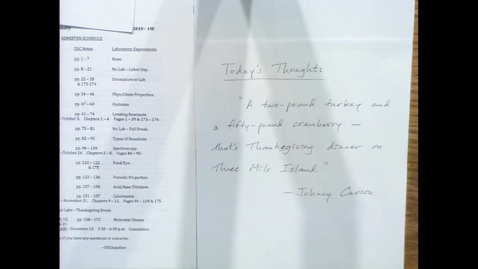 2010 - 19E
SEMESTER SCHEDULE
TSC Notes Laboratory Experiments
pp. 1 – 7 None
pp. 8 – 21 No Lab – Labor Day
pp. 22 – 33 Orientation to Lab
& 173-174
pp. 34 – 46 Phys/Chem Properties
pp. 47 – 60 Hydrates
pp. 61 – 74 Limiting Reactants
October 3. Chapters 1 – 4. Pages 1 – 59 & 173 – 174.
pp. 75 – 81 No Lab – Fall Break
pp. 82 – 95 Types of Reactions
pp. 96 – 109 Spectroscopy
October 24. Chapters 5 – 8. Pages 60 – 90.
pp. 110 – 122 Food Dye
& 175
pp. 123 – 136 Periodic Properties
pp. 137 – 150 Acid/Base Titration
pp. 151 – 157 Laboratory
November 21. Chapters 9 – 12. Pages 91 – 139 & 175
Thanksgiving Break
pp. 158 – 172 Molecular Shapes
December 14. 5:00 – 6:00 p.m. Cumulative.
if you have any questions or concerns.
Today's Thought:
"A two-pound turkey and
a fifty-pound cranberry —
that's Thanksgiving dinner on
Three Mile Island."
—Johnny Carson